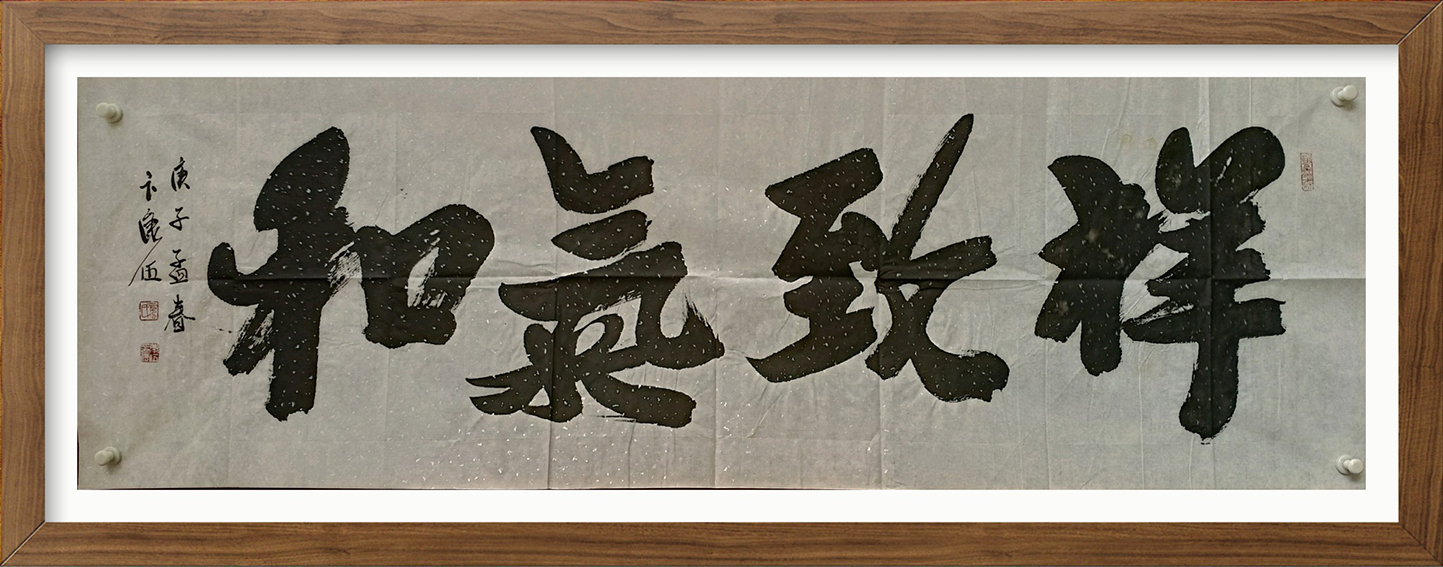 祥致氣和
庚子孟春